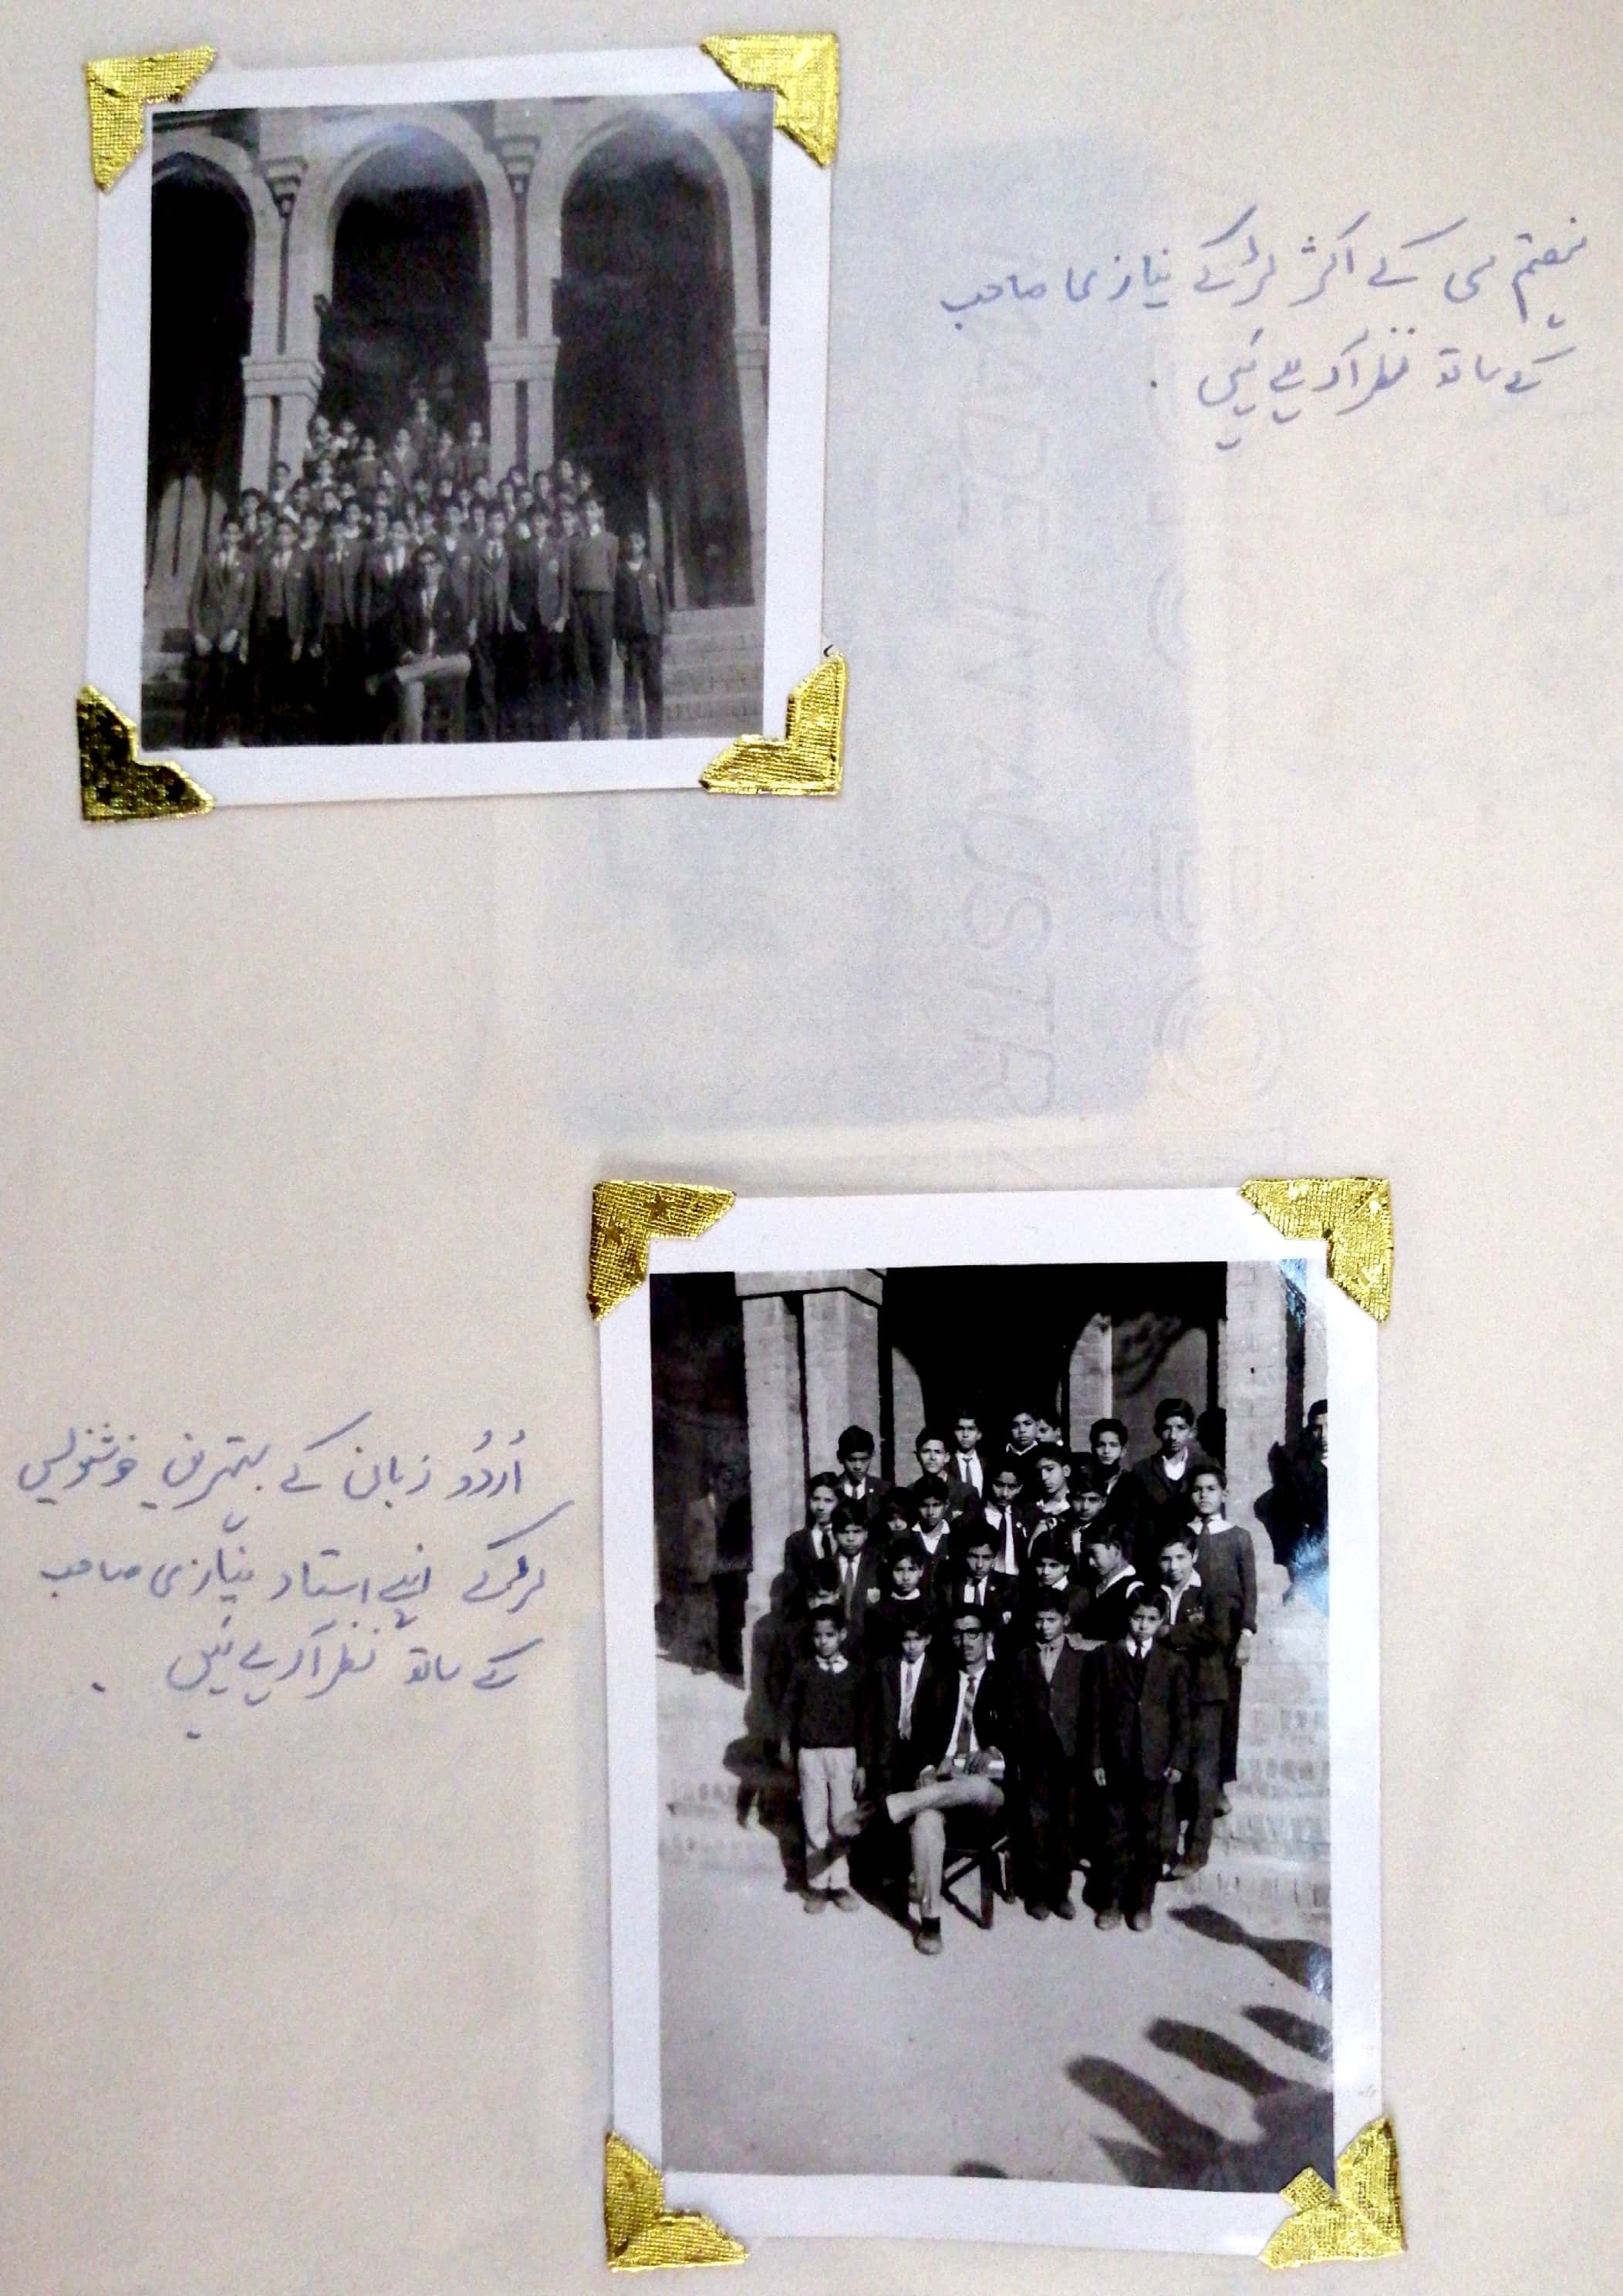 ہفتم سی کے اکثر لڑکے نیازی صاحب
کے ساتھ نظر آ رہے ہیں
اُردُو زبان کے بہترین خوشنویس
لڑکے اپنے استاد نیازی صاحب
کے ساتھ نظر آ رہے ہیں ۔